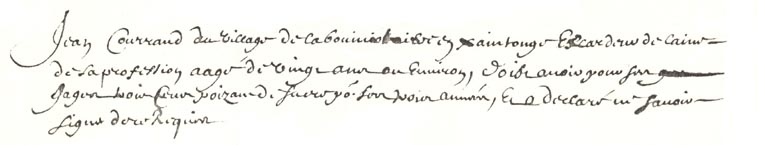 Jean Courraud du village de la bouinotiere en xaintonge Et cardeur de laine
de sa profession aagé de vingt ans ou Environ, doibt avoir pour ses
gages trois Cent poizant de sucre po.r ses trois années, Et a declaré ne scavoir
signe de ce Requis